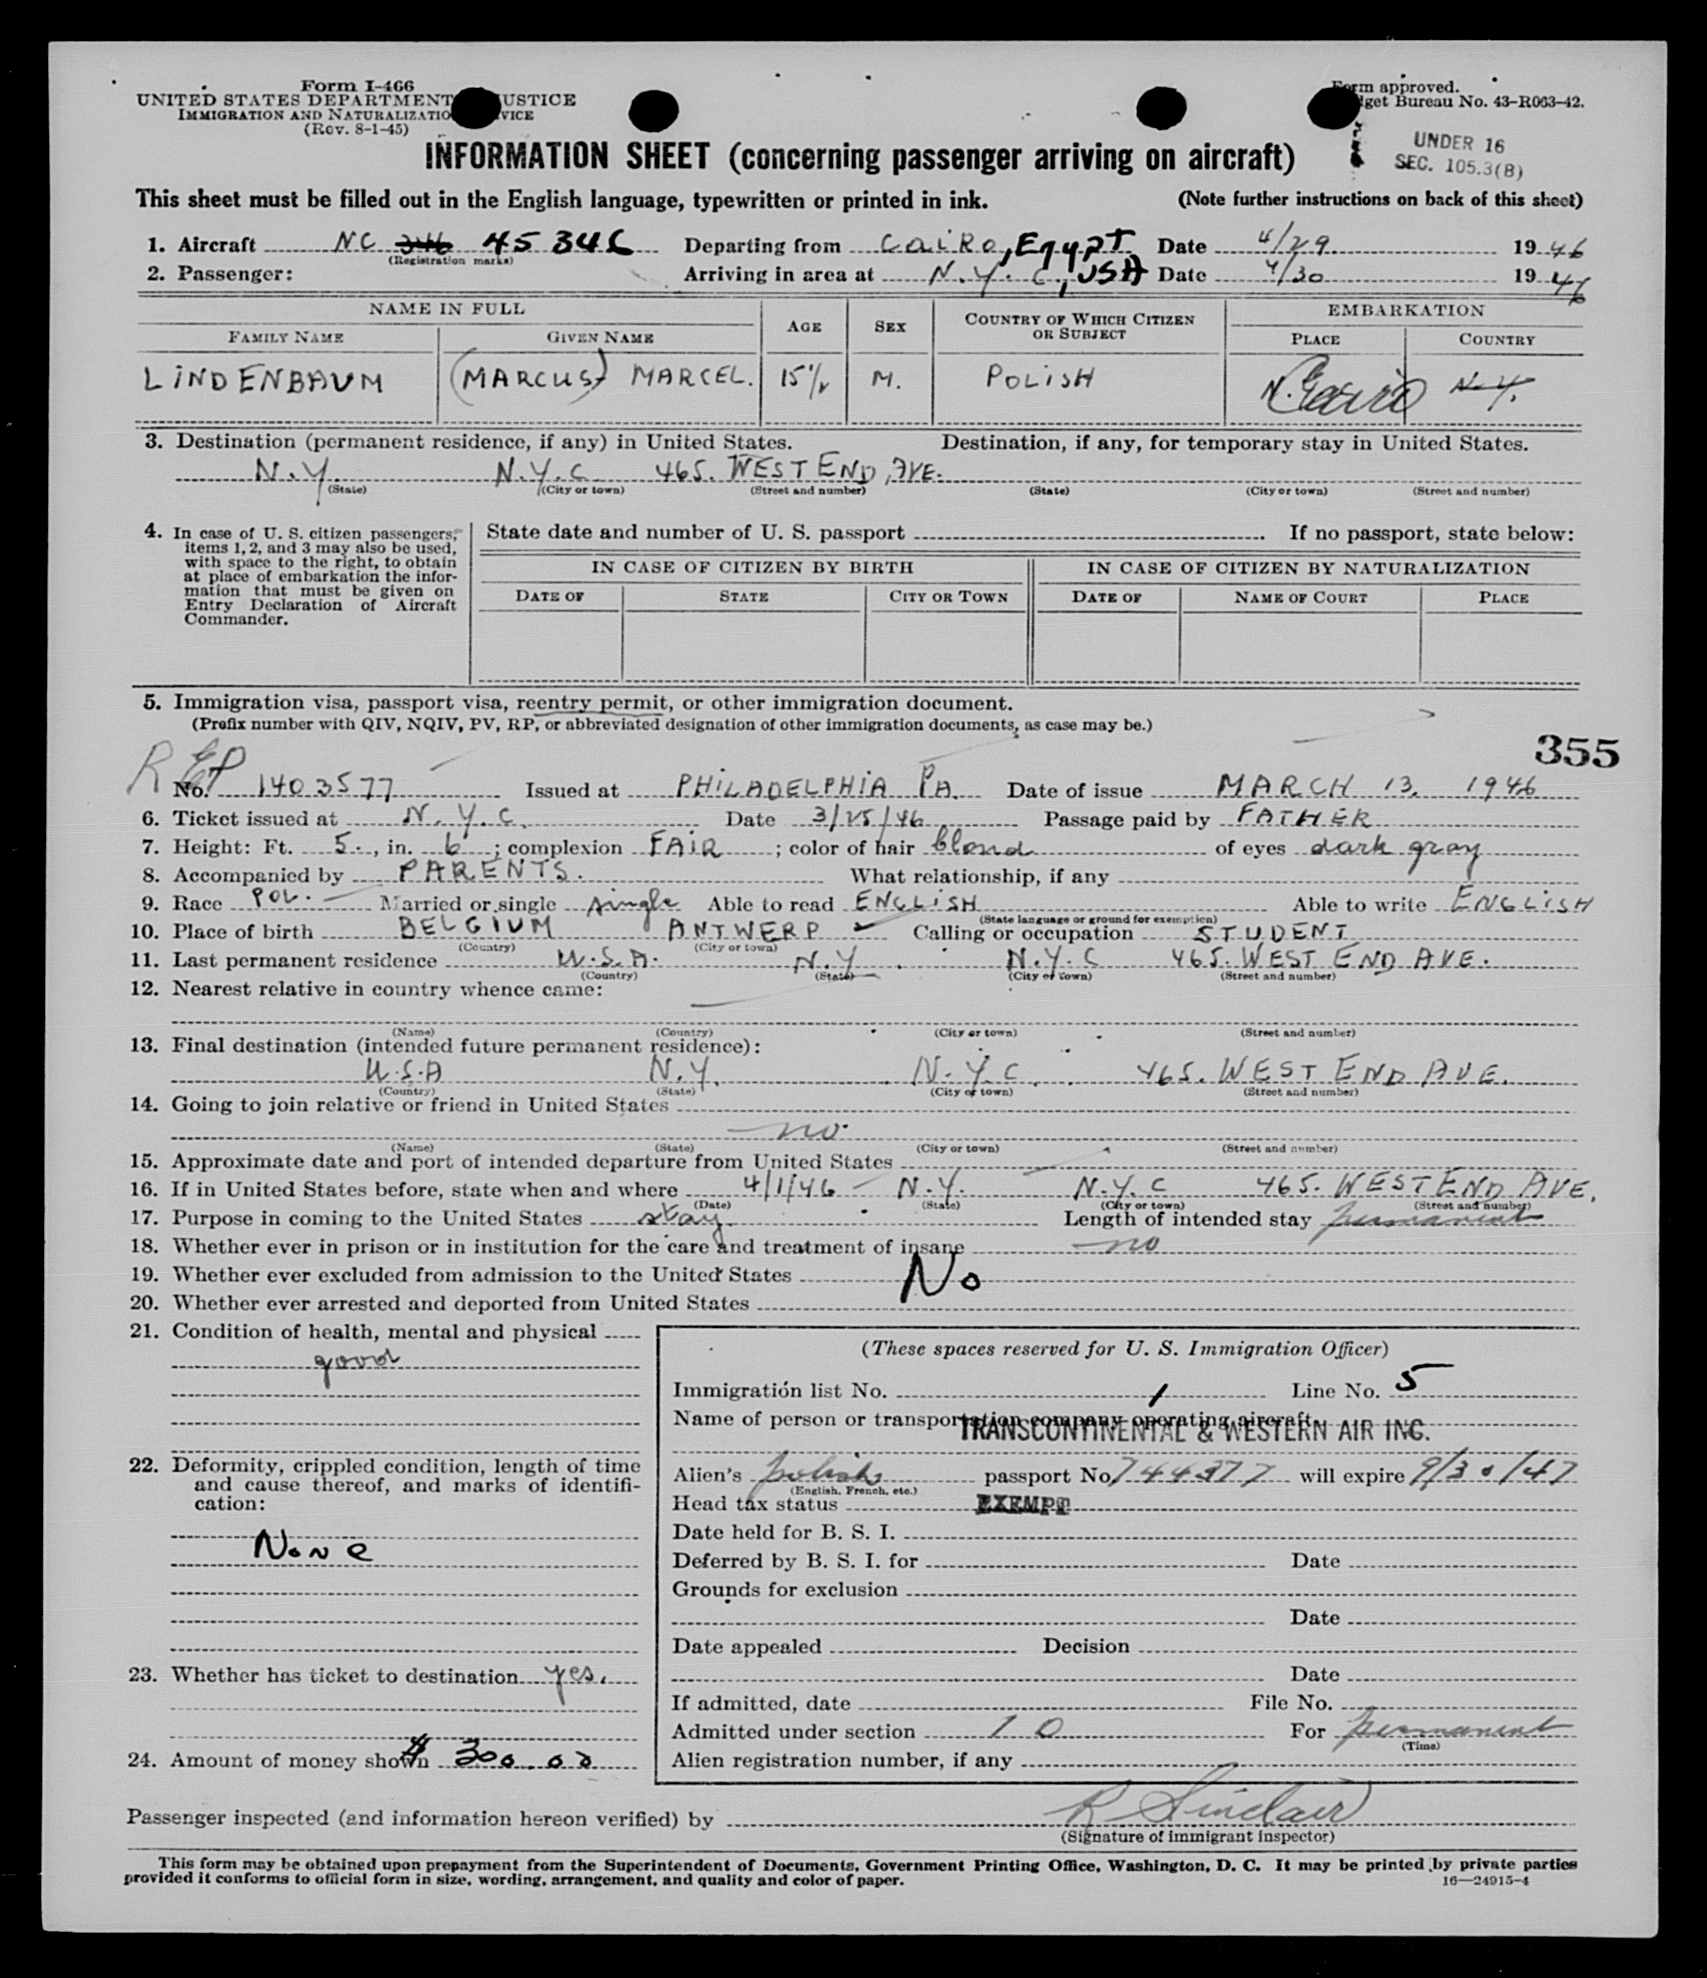 Form I-466
UNITED STATES DEPARTMENT JUSTICE
IMMIGRATION AND NATURALIZATION SERVICE
(Rev. 8-1-45)
Form approved.
Budget Bureau No. 43-R063-42.
UNDER 16
SEC. 105.3(B)
INFORMATION SHEET (concerning passenger arriving on aircraft)
This sheet must be filled out in the English language, typewritten or printed in ink. (Note further instructions on back of this sheet)
1. Aircraft NC 45346 Departing from Cairo, Egypt Date 4/29 1946
(Registration marks)
2. Passenger: Arriving in area at N.Y.C., USA Date 4/30 1946
NAME IN FULL AGE SEX COUNTRY OF WHICH CITIZEN OR SUBJECT EMBARKATION
FAMILY NAME GIVEN NAME PLACE COUNTRY
LINDENBAUM (MARCUS) MARCEL. 15½ M. POLISH Cairo N.Y.
3. Destination (permanent residence, if any) in United States. Destination, if any, for temporary stay in United States.
N.Y. N.Y.C 465. WEST END, AVE.
(State) (City or town) (Street and number) (State) (City or town) (Street and number)
4. In case of U. S. citizen passengers, items 1, 2, and 3 may also be used, with space to the right, to obtain at place of embarkation the information that must be given on Entry Declaration of Aircraft Commander.
State date and number of U. S. passport If no passport, state below:
IN CASE OF CITIZEN BY BIRTH IN CASE OF CITIZEN BY NATURALIZATION
DATE OF STATE CITY OR TOWN DATE OF NAME OF COURT PLACE
5. Immigration visa, passport visa, reentry permit, or other immigration document.
(Prefix number with QIV, NQIV, PV, RP, or abbreviated designation of other immigration documents, as case may be.)
355
No. 1403577 Issued at PHILADELPHIA PA. Date of issue MARCH 13. 1946
6. Ticket issued at N.Y.C. Date 3/25/46 Passage paid by FATHER
7. Height: Ft. 5., in. 6; complexion FAIR; color of hair blond of eyes dark gray
8. Accompanied by PARENTS. What relationship, if any
9. Race POL. Married or single single Able to read ENGLISH Able to write ENGLISH
(State language or ground for exemption)
10. Place of birth BELGIUM ANTWERP Calling or occupation STUDENT
(Country) (City or town)
11. Last permanent residence U.S.A. N.Y. N.Y.C 465. WEST END AVE.
(Country) (State) (City or town) (Street and number)
12. Nearest relative in country whence came:
(Name) (Country) (City or town) (Street and number)
13. Final destination (intended future permanent residence):
U.S.A N.Y. N.Y.C. 465. WEST END AVE.
(Country) (State) (City or town) (Street and number)
14. Going to join relative or friend in United States
no.
(Name) (State) (City or town) (Street and number)
15. Approximate date and port of intended departure from United States
16. If in United States before, state when and where 4/1/46 N.Y. N.Y.C 465. WEST END AVE.
(Date) (State) (City or town) (Street and number)
17. Purpose in coming to the United States stay Length of intended stay permanent
18. Whether ever in prison or in institution for the care and treatment of insane no
19. Whether ever excluded from admission to the United States No
20. Whether ever arrested and deported from United States
21. Condition of health, mental and physical
good
22. Deformity, crippled condition, length of time and cause thereof, and marks of identification:
None
23. Whether has ticket to destination yes.
24. Amount of money shown $ 300.00
(These spaces reserved for U. S. Immigration Officer)
Immigration list No. 1 Line No. 5
Name of person or transportation company operating aircraft
TRANSCONTINENTAL & WESTERN AIR INC.
Alien's polish passport No. 744377 will expire 9/30/47
(English, French, etc.)
Head tax status EXEMPT
Date held for B. S. I.
Deferred by B. S. I. for Date
Grounds for exclusion
Date
Date appealed Decision
Date
If admitted, date File No.
Admitted under section 10 For permanent
(Time)
Alien registration number, if any
Passenger inspected (and information hereon verified) by R Sinclair
(Signature of immigrant inspector)
This form may be obtained upon prepayment from the Superintendent of Documents, Government Printing Office, Washington, D. C. It may be printed by private parties
provided it conforms to official form in size, wording, arrangement, and quality and color of paper. 16—24915-4